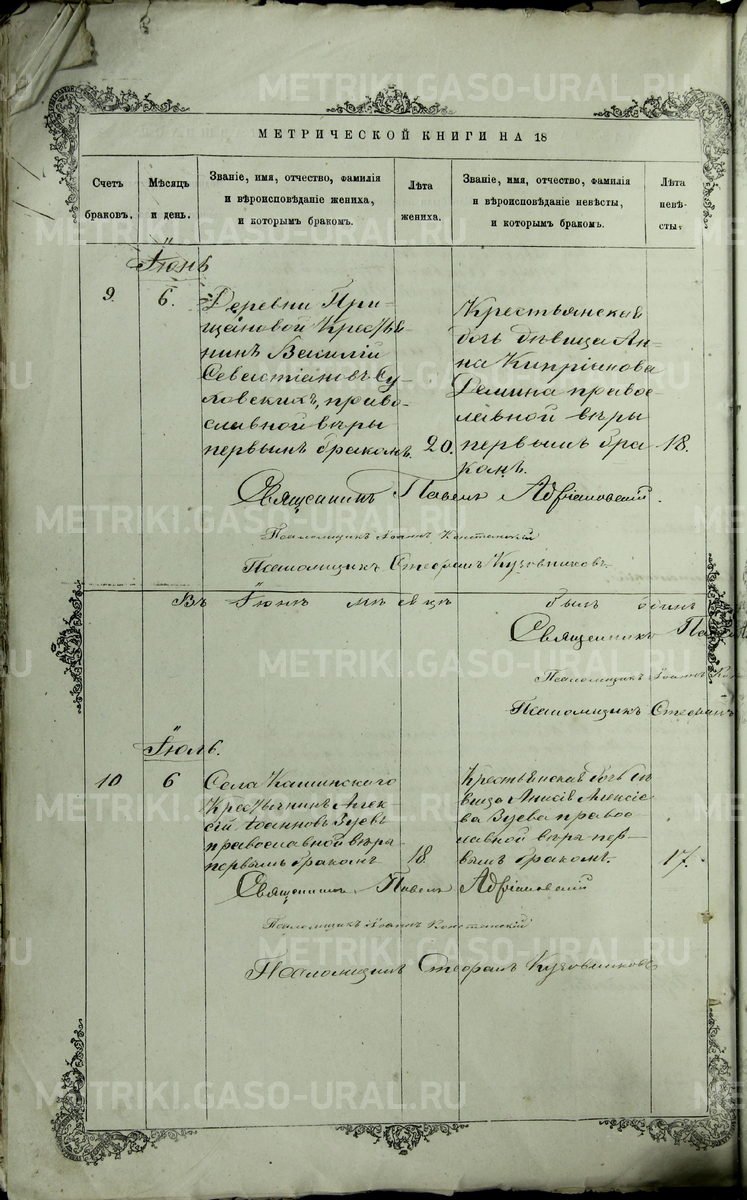 МЕТРИЧЕСКОЙ КНИГИ НА 18
Счетъ браковъ.
Мѣсяцъ и день.
Званіе, имя, отчество, фамилія и вѣроисповѣданіе жениха, и которымъ бракомъ.
Лѣта жениха.
Званіе, имя, отчество, фамилія и вѣроисповѣданіе невѣсты, и которымъ бракомъ.
Лѣта невѣ-сты.
Іюнь
9.
6.
Деревни При-
щановой Крестья
нинъ Василій
Севастіановъ Су-
ловскихъ, право-
славной вѣры
первымъ бракомъ.
20.
Крестьянская
дочь дѣвица Ан-
на Кипріянова
Демина правос-
лавной вѣры
первымъ бра
комъ.
18.
Священникъ Павелъ Адріановскій.
Псаломщикъ Іоаннъ
Псаломщикъ Стефанъ Кузовниковъ.
Въ Іюнѣ мѣсяцѣ былъ одинъ
Священникъ
Псаломщикъ Іоаннъ
Псаломщикъ Стефанъ
Іюль.
10
6
Села Кашинского
Крестьянинъ Алек-
сѣй Іоанновъ Зуевъ
православной вѣры
первымъ бракомъ
18
Крестьянская дочь дѣ
вица Анисія Алексіе
ва Зуева правос
лавной вѣры пер-
вымъ бракомъ.
17.
Священникъ Павелъ Адріановскій
Псаломщикъ Іоаннъ
Псаломщикъ Стефанъ Кузовниковъ
METRIKI.GASO-URAL.RU